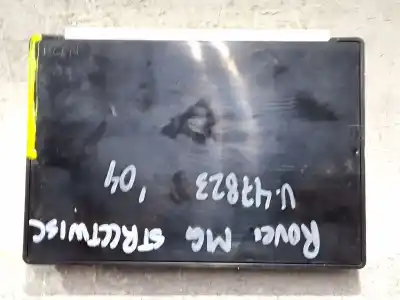 ROVER MG STREETWISE
V-47823
'04